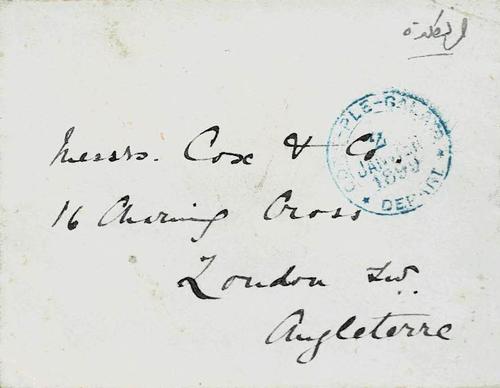 Messrs. Cox & Co.
16 Charing Cross
London S.W.
Angleterre
PLE-GALATA
7
JANVIER
1899
* DEPART *